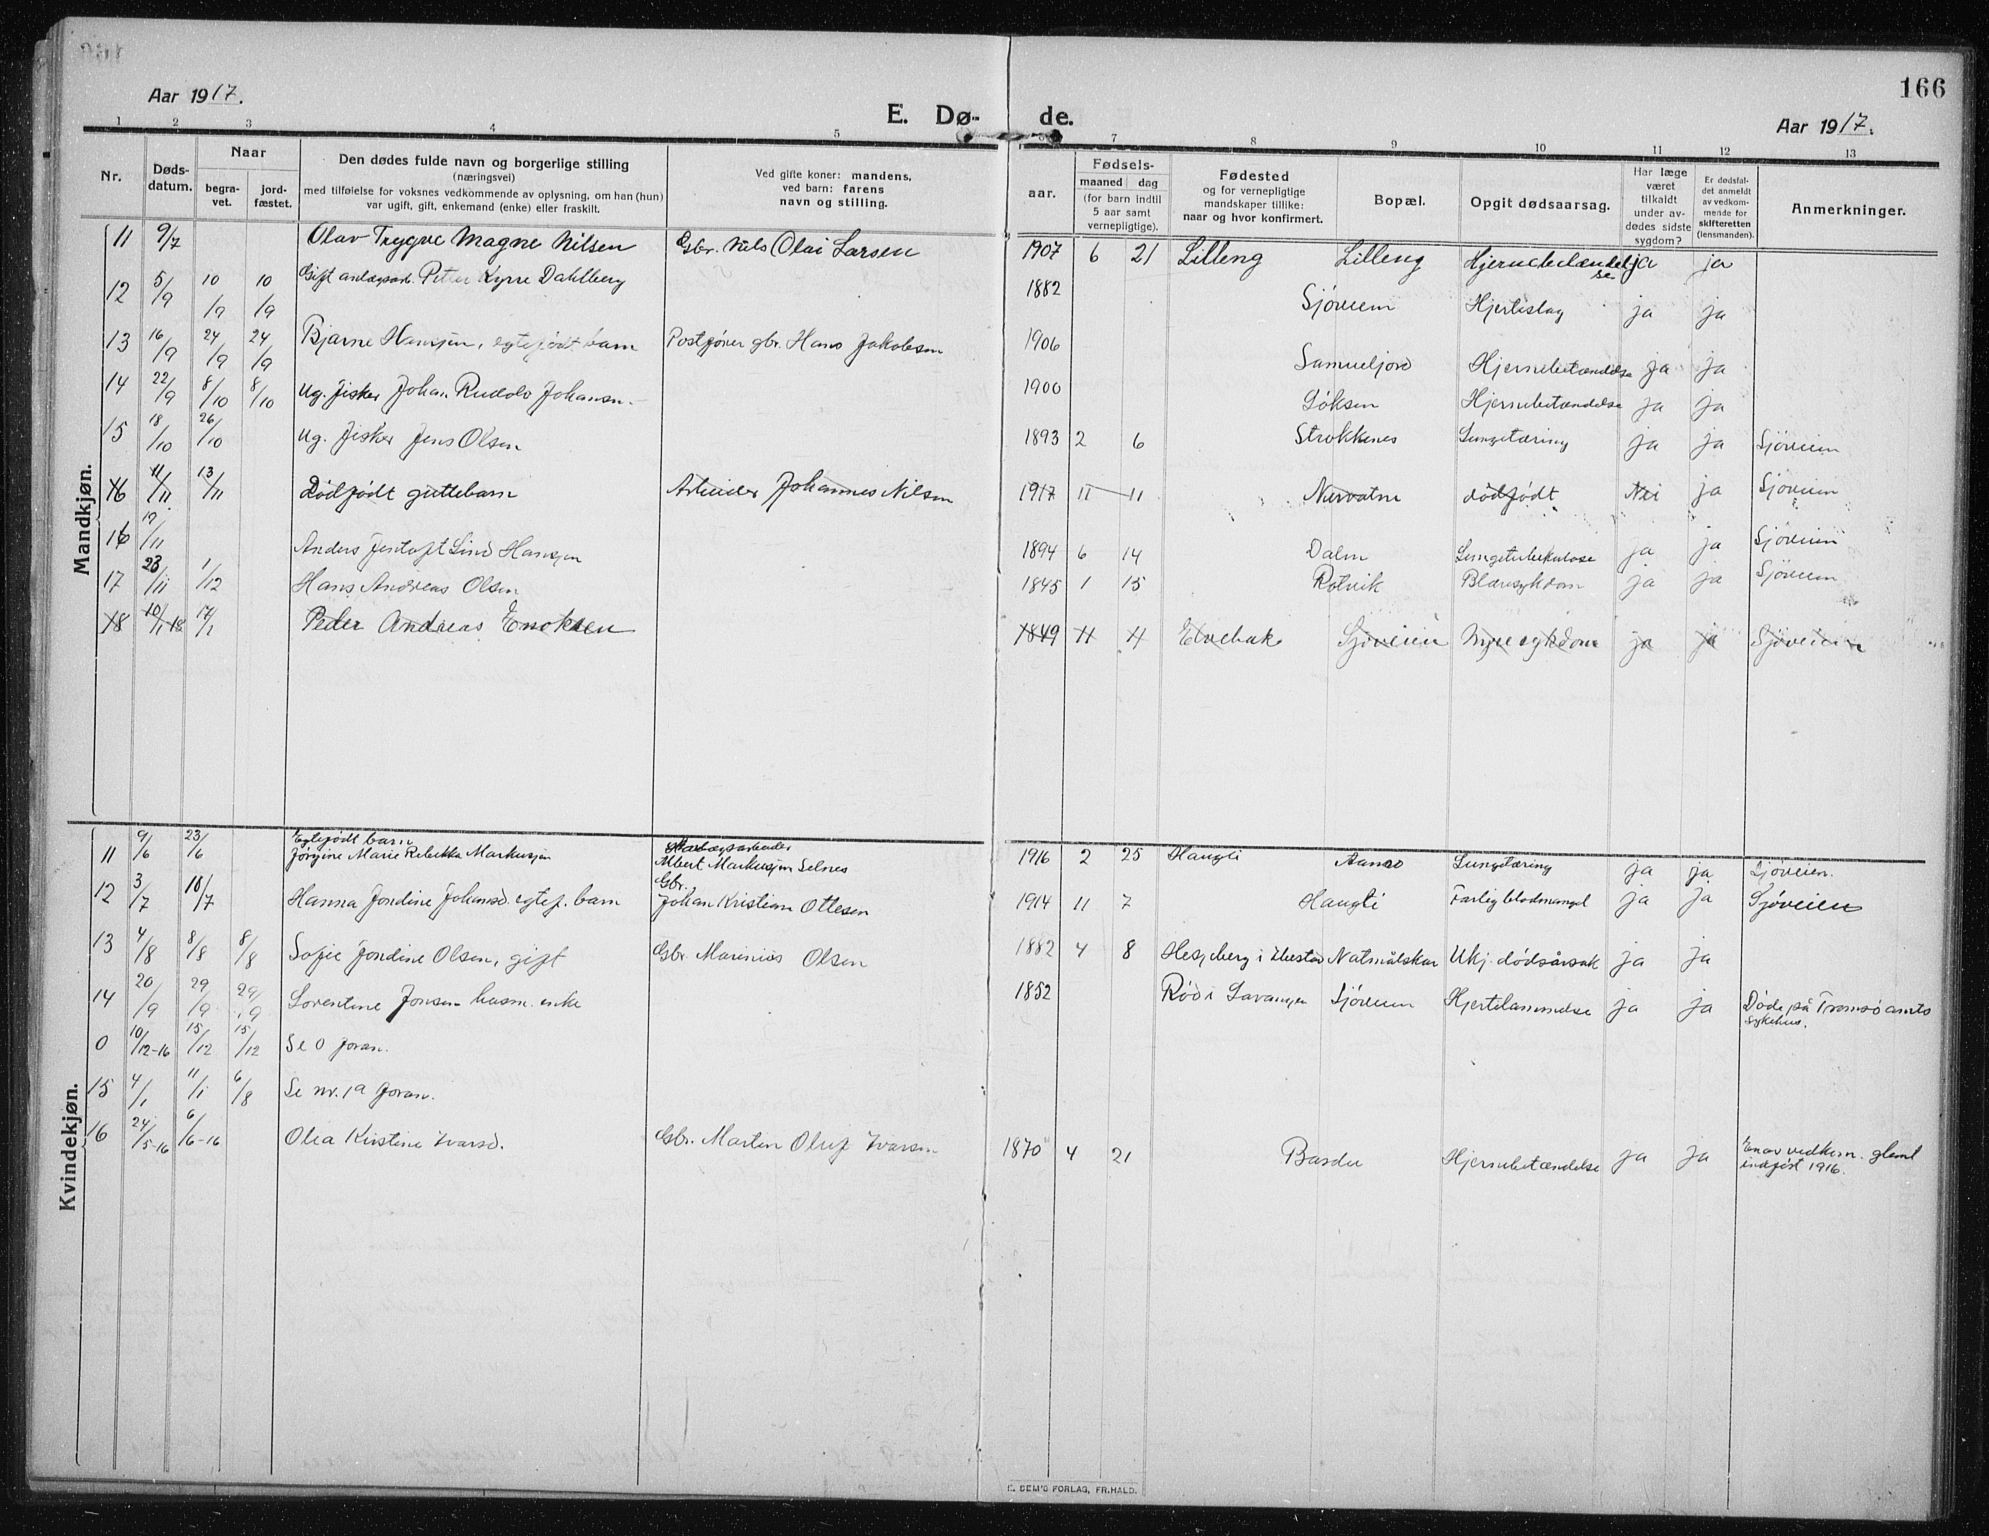 166
Aar 1917.
E. Dø- de.
Aar 1917.
1 2 3 4 5 7 8 9 10 11 12 13
Nr.
Døds-
datum.
Naar
begra-
vet.
jord-
fæstet.
Den dødes fulde navn og borgerlige stilling
(næringsvei)
med tilføielse for voksnes vedkommende av oplysning, om han (hun)
var ugift, gift, enkemand (enke) eller fraskilt.
Ved gifte koner: mandens,
ved barn: farens
navn og stilling.
aar.
Fødsels-
maaned dag
(for barn indtil
5 aar samt
vernepligtige).
Fødested
og for vernepligtige
mandskaper tillike:
naar og hvor konfirmert.
Bopæl.
Opgit dødsaarsag.
Har læge
været
tilkaldt
under av-
dødes sidste
sygdom?
Er dødsfal-
det anmeldt
av vedkom-
mende for
skifteretten
(lensmanden).
Anmerkninger.
Mandkjøn.
11 9/7 Olav Trygve Magne Nilsen Gbr. Nils Olai Larsen 1907 6 21 Lilleng Lilleng Hjernebetændelse ja ja
12 5/9 10/9 10/9 Gift anlægsarb. Peter Kyrre Dahlberg 1882 Sjøveien Hjerteslag ja ja
13 16/9 24/9 24/9 Bjarne Hansen, egtefødt barn Postfører gbr. Hans Jakobsen 1906 Samueljord Hjernebetændelse ja ja
14 22/9 8/10 8/10 Ug. fisker Johan Rudolv Johansn. 1900 Løksen Hjernebetændelse ja ja
15 18/10 26/10 Ug. fisker Jens Olsen 1893 2 6 Strokkenes Lungetæring ja ja Sjøveien
16 11/11 13/11 Dødfødt guttebarn Arbeider Johannes Nilsen 1917 11 11 Nervatne dødfødt Nei ja Sjøveien
16 19/11 Anders Jentoft Lind Hansen 1894 6 14 Dalm Lungetuberkulose ja ja Sjøveien
17 23/11 1/12 Hans Andreas Olsen 1845 1 15 Rotvik Blæresykdom ja ja Sjøveien
18 10/1-18 17/1 Peder Andreas Enoksen 1849 11 4 Elvebak Sjøveien Nyresykdom ja ja Sjøveien
Kvindekjøn.
11 9/6 23/6 Egtefødt barn
Jørgine Marie Rebekka Markussen Albert Markussen Selnes 1916 2 25 Haugli Aanes Lungetæring ja ja Sjøveien.
12 3/7 10/7 Hanna Jondine Johansd. egtef. barn Gbr. Johan Kristian Ottesen 1914 11 7 Haugli Farlig blodmangel ja ja Sjøveien
13 4/8 8/8 8/8 Sofie Jondine Olsen, gift Gbr. Marinius Olsen 1882 4 8 Hesjeberg i Ibestad Natmålskar Ukj. dødsårsak ja ja
14 20/9 29/9 29/9 Lorentine Jonsen husm. enke 1852 Rød i Lavangen Sjøveien Hjertelammelse ja ja Døde på Tromsø amts
sykehus.
0 10/12-16 15/12 15/12 Se 0 foran.
15 4/1 11/1 6/8 Se nr. 1a foran.
16 24/5-16 6/6-16 Olea Kristine Ivarsd. Gbr. Martin Oluf Ivarsen 1870 4 21 Bardu Hjernebetændelse ja ja En av vedkom. glemt
indført 1916.
E. SEM'S FORLAG, FR.HALD.